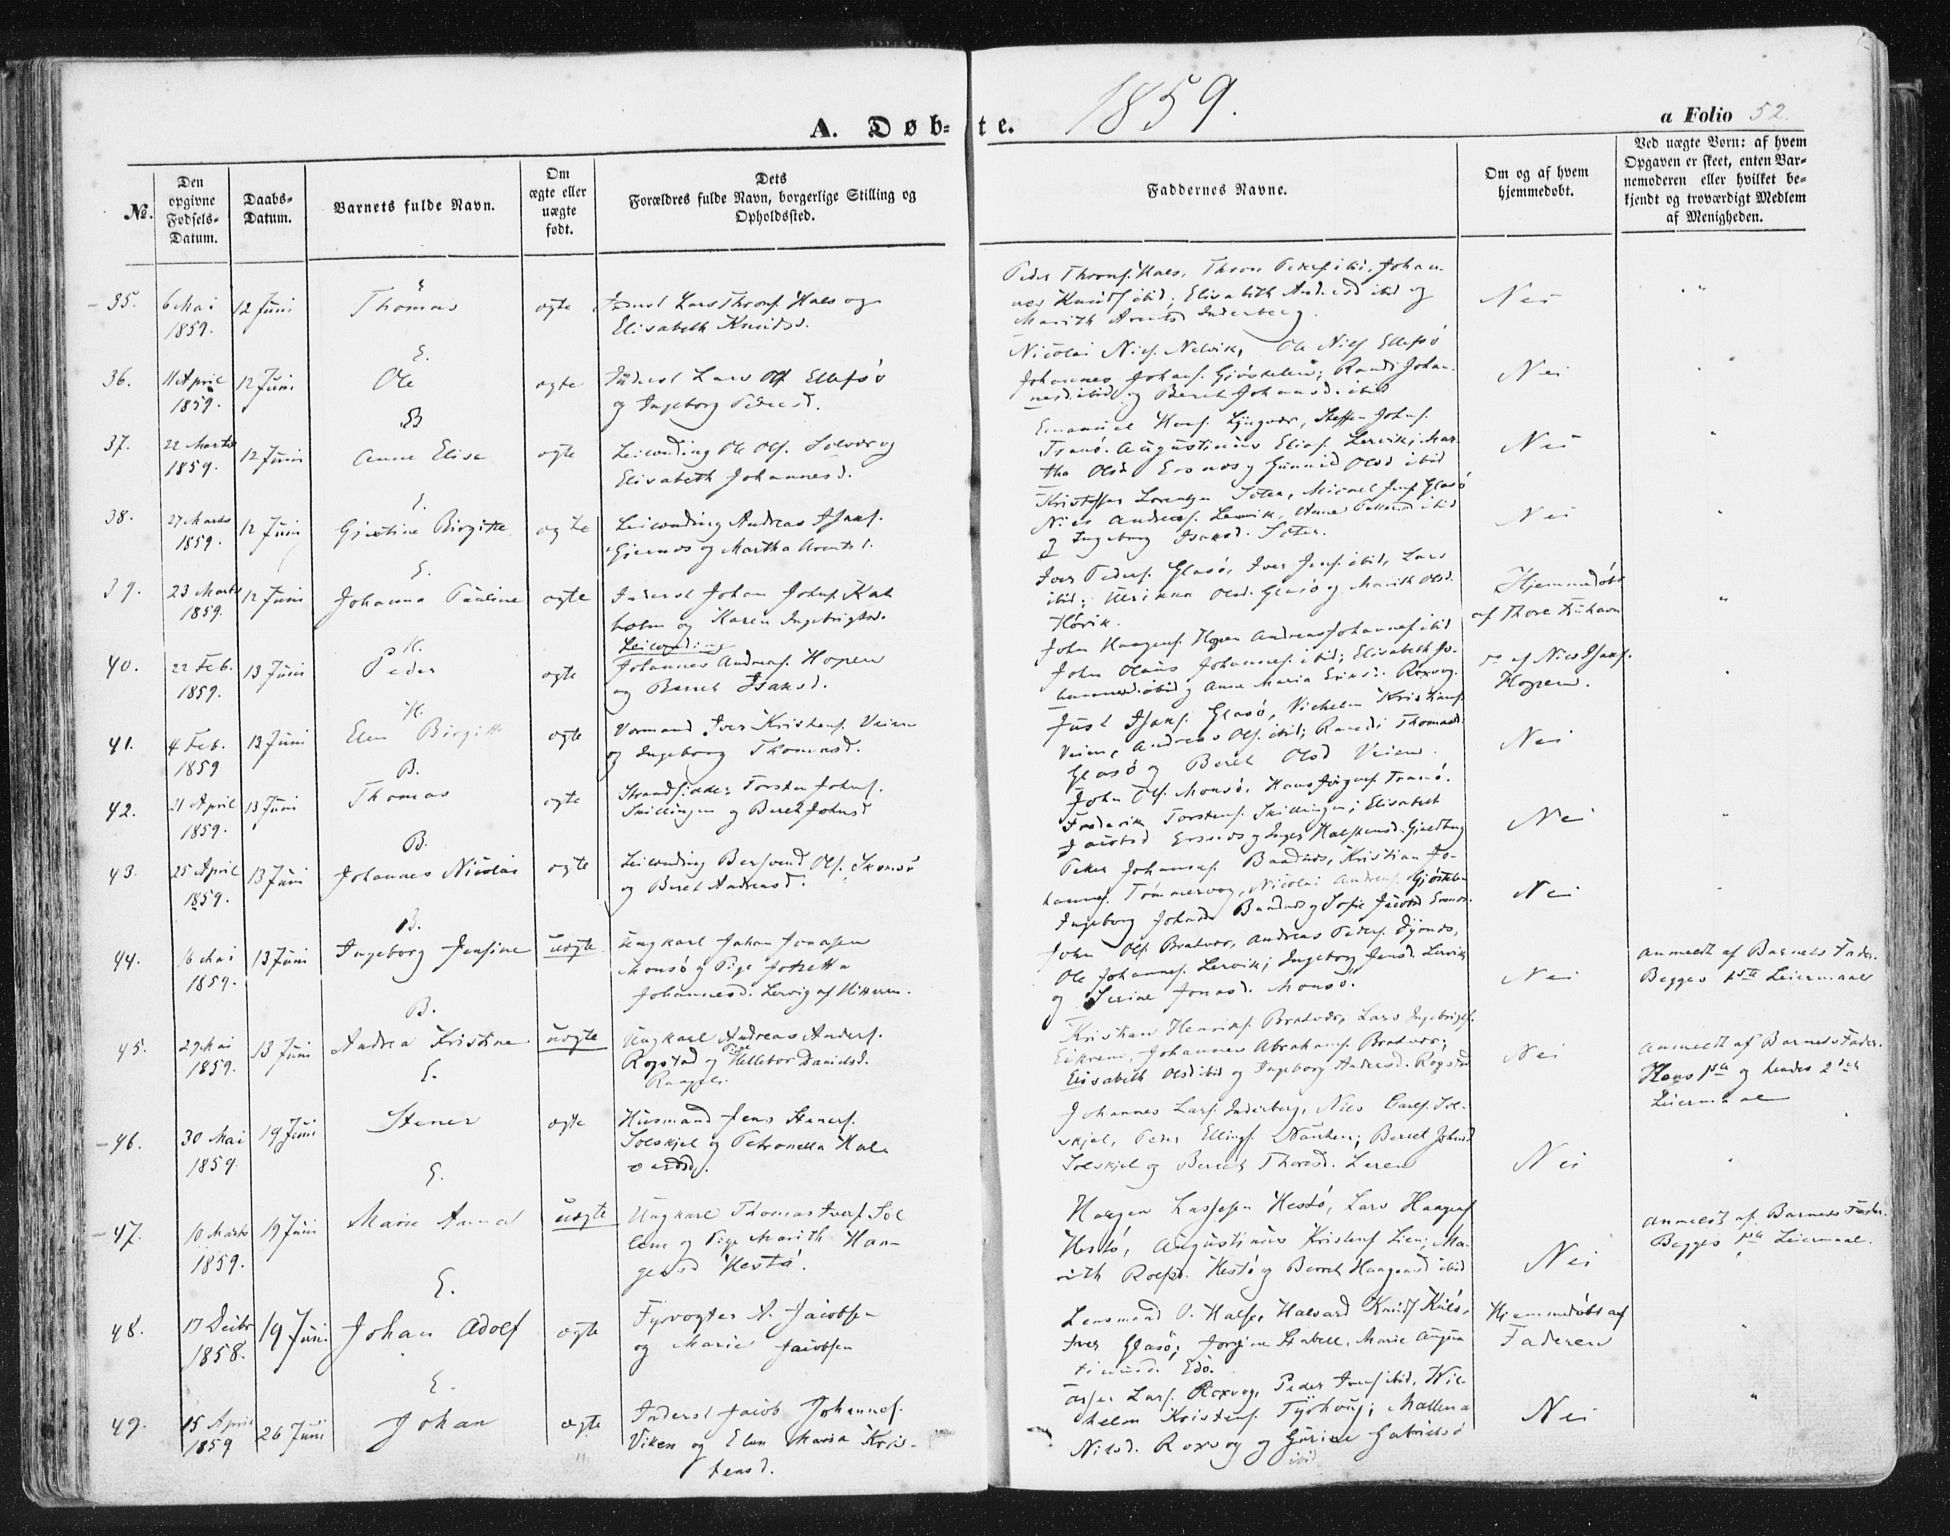 1859.
A. Døb- te.
a Folio 52.
No.
Den opgivne Fødsels-Datum.
Daabs-Datum.
Barnets fulde Navn.
Om ægte eller uægte født.
Dets Forældres fulde Navn, borgerlige Stilling og Opholdssted.
Faddernes Navne.
Om og af hvem hjemmedøbt.
Ved uægte Børn: af hvem Opgaven er skeet, enten Barnemoderen eller hvilket bekjendt og troværdigt Medlem af Menigheden.
35. 6 Mai 1859. 12 Juni Thomas ægte
Inderst Lars Throns. Hals og
Elisabeth Knudsd.
Peder Throns. Hals, Thron Peders. ibid, Johan-
nes Knuds. ibid; Elisabeth Andersd ibid og
Marith Arentsd Inderberg.
Nei
E.
36. 11 April 1859. 12 Juni Ole ægte
Inderst Lars Ols. Ellefsö
og Ingeborg Pedersd.
Nicolai Niels. Nelvik, Ole Niels. Ellefsö
Johannes Johans. Gjöstelen; Randi Johan-
nesd ibid og Bereth Johannsd. ibid
Nei
B
37. 22 Marts 1859. 12 Juni Anne Elise ægte
Leilending Ole Ols. Solvær og
Elisabeth Johannesd.
Emanuel Hans. Lyngvær, Steffen Johns.
Tranö. Augustinus Elias. Lervik; Mar-
tha Olsd Ersnes og Gunnild Olsd ibid
Nei
E.
38. 27 Marts 1859. 12 Juni Gjertine Birgitte ægte
Leilending Andreas Isaks.
Gjernes og Martha Arentsd.
Kristoffer Lorentzen Soter, Michael Jens. Glasö
Niels Andreas. Lervik, Anne Pedersd ibid
og Ingeborg Isaksd. Soter.
Nei
E.
39. 23 Marts 1859. 12 Juni Johanna Pauline ægte
Inderst Johan Johns. Kal
holm og Karen Ingebrigtsd.
Iver Peders. Glasö, Iver Jens. ibid, Lars
ibid; Ulrikka Olsd. Glasö og Marith Olsd.
Hövik.
Hjemmedöbt
af Thore Kuhavn
H.
40. 22 Feb. 1859. 13 Juni Peder ægte
Leilending
Johannes Andreas. Hopen
og Bereth Isaksd.
John Haagens. Hopen Andreas Johannes. ibid
John Olaus Johannes. ibid; Elisabeth Jo-
hannesd ibid og Anne Maria Eriksd. Roxvog.
do af Niels Isaks.
Hopen.
H.
41. 4 Feb. 1859 13 Juni Elen Birgitte ægte
Vormand Iver Kristens. Veien
og Ingeborg Thomasd.
Just Isaks. Glasö, Vilhelm Kristians.
Veien, Andreas Ols. ibid; Randi Thomasd.
Glasö og Bereth Olsd Veien.
Nei
B.
42. 21 April 1859. 13 Juni Thomas ægte
Strandsidder Torsten Johns.
Skillingen og Bereth Johnsd
John Ols. Monsö, Hans Jörgens. Tranö.
Frederik Torstens. Skillingen; Elisabeth
Jacobsd Ersnes og Inger Halstensd. Gjeldberg
Nei
B.
43. 25 April 1859. 13 Juni Johannes Nicolai ægte
Leilending Bersvend Ols. Skomsö
og Bereth Andreasd.
Peter Johannes. Baadnes, Kristian Jo-
hannes. Tömmervog, Nicolai Andreas. Gjöstelen
Ingeborg Johnsdr Baadnes og Sofie Jacobsd Ersnes.
Nei
B.
44. 16 Mai 1859. 13 Juni Ingeborg Jensine uægte
Ungkarl Johan Jonassen
Monsö og Pige Jetzetta
Johannesd. Lervig af Hitteren.
John Ols. Bratvær, Andreas Peders. Dyrnes,
Ole Johannes. Lervik; Ingeborg Jensd. Lervik
og Serine Jonasd. Monsö.
Nei
Anmeldt af Barnets Fader.
Begges 1ste Leiermaal
B.
45. 29 Mai 1859. 13 Juni Andrea Kristine uægte
Ungkarl Andreas Anders.
Rogstad og Pige Hellebor Danielsd.
Kristian Henriks. Bratvær, Lars Ingebrigts.
Eikrem, Johannes Abrahams. Bratvær;
Elisabeth Olsd ibid og Ingeborg Andersd. Rogstad
Nei
Anmeldt af Barnets Fader.
Hans 1ste og hendes 2det
Leiermaal
E.
46. 30 Mai 1859. 19 Juni Stener ægte
Husmand Jens Steners.
Solskjel og Petronella Hal-
vorsd.
Johannes Lars. Inderberg, Niels Carls. Sol-
skjel, Peder Ellings. Nausten; Bereth Johnsd
Solskjel og Bereth Thoresd. Leren
Nei
E.
47. 10 Marts 1859. 19 Juni Marie Anna uægte
Ungkarl Thomas Ivers. Sol
lem og Pige Marith Haa-
gensd Hestö.
Haagen Lassesen Hestö, Lars Haagens.
Hestö, Augustinus Kristens. Lien; Ma-
rith Roelsd. Hestö og Bereth Haagensd ibid
Nei
Anmeldt af Barnets Fader.
Begges 1ste Leiermaal.
E.
48. 17 Decbr 1858. 19 Juni Johan Adolf ægte
Fyrvogter A. Jacobsen
og Marie Jacobsen
Lensmand O. Halse, Halvard Knuds. Kuli,
Iver Glasö; Jorgine Stabell, Marie Augus
tinusd. Edö.
Hjemmedöbt af
Faderen
E.
49. 15 April 1859 26 Juni Johan ægte
Inderst Jacob Johannes.
Viken og Elen Maria Kris-
tensd.
Lars. Roxvog, Peder Ivers. ibid, Wil-
helm Kristens. Tyrhoug; Mallena
Nilsd. Roxvog og Gurine Gabrielsd
ibid
Nei